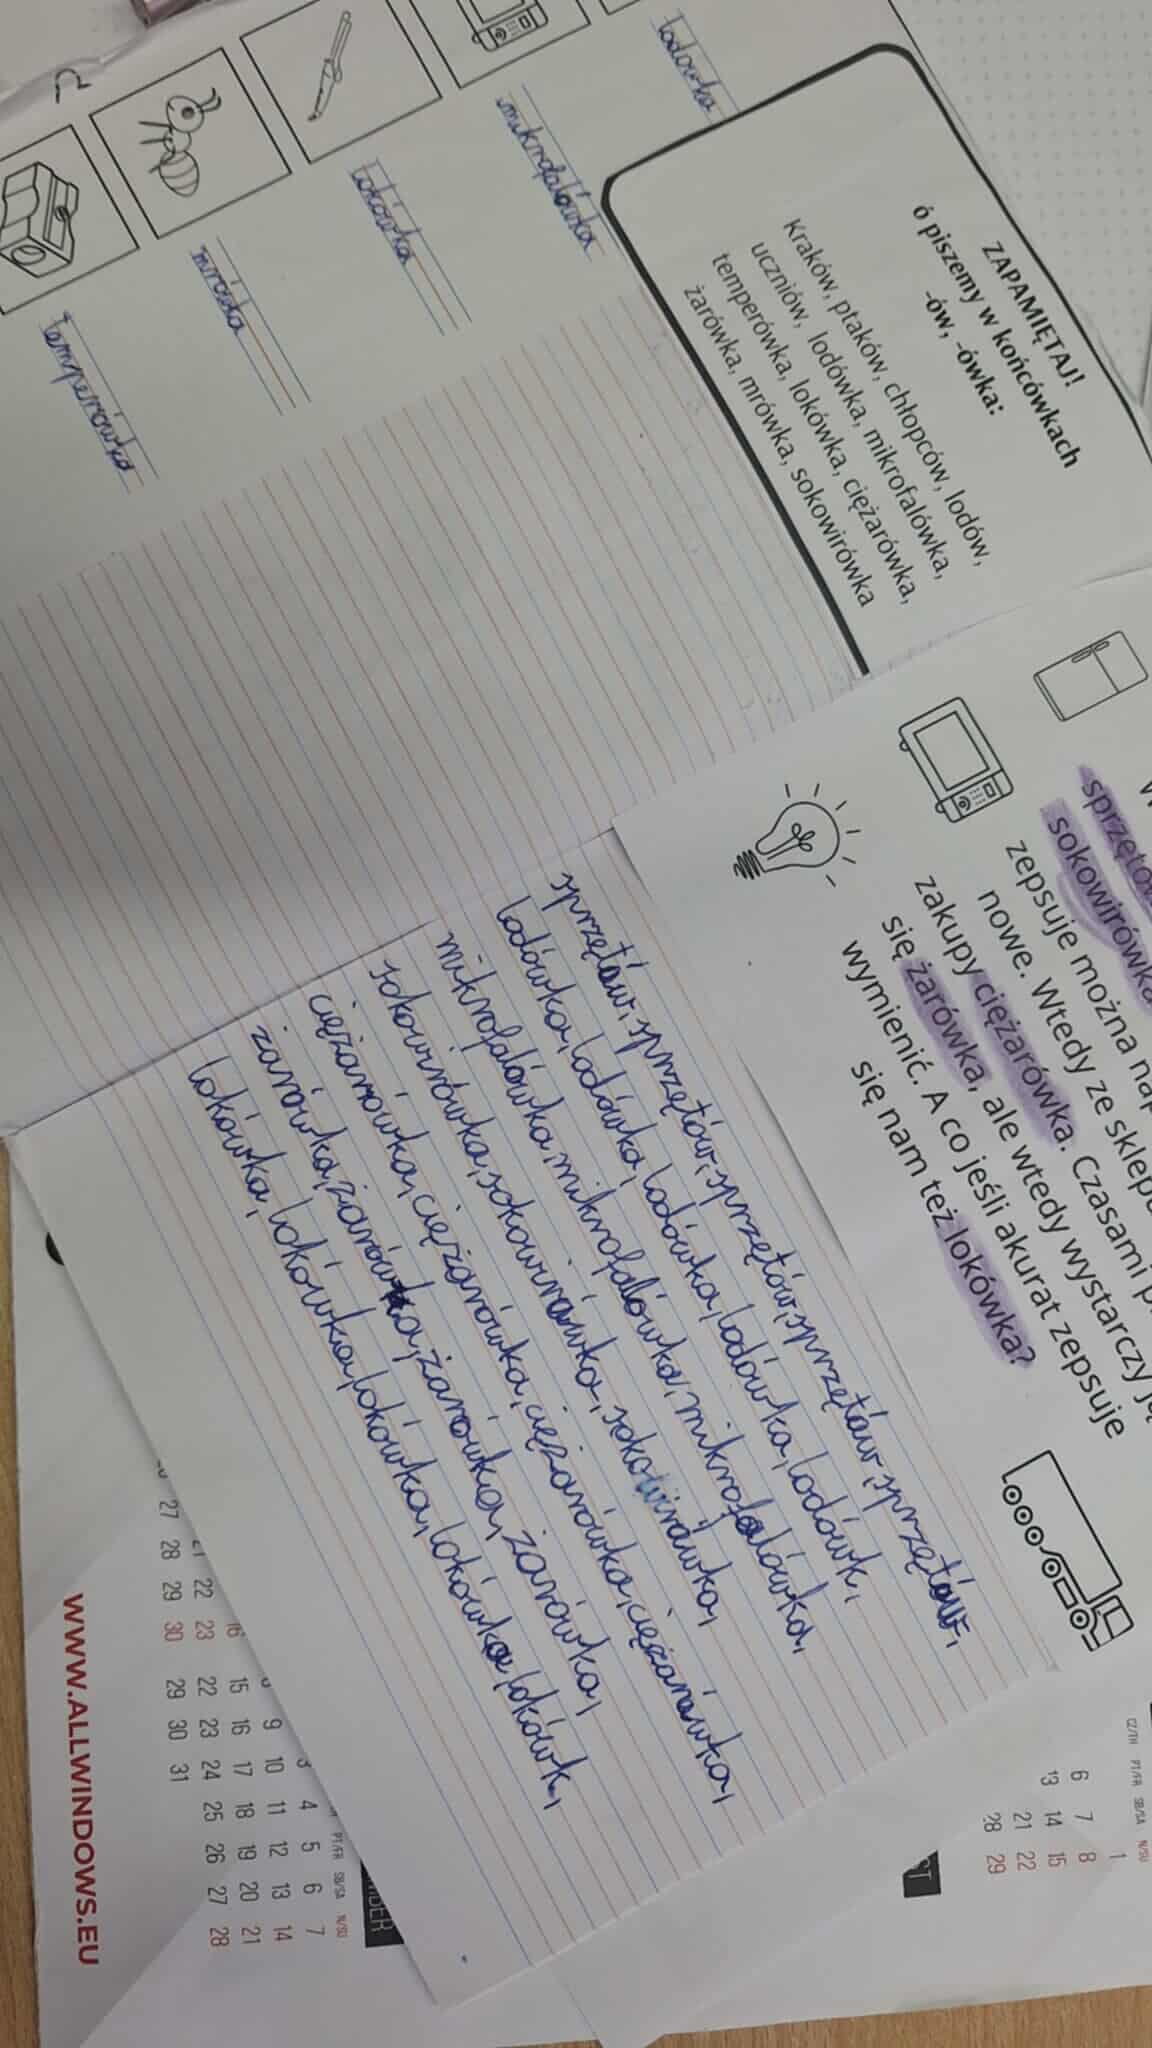 lodówka
mikrofalówka
lokówka
mrówka
temperówka
ZAPAMIĘTAJ!
ó piszemy w końcówkach
-ów, -ówka:
Kraków, ptaków, chłopców, lodów,
uczniów, lodówka, mikrofalówka,
temperówka, lokówka, ciężarówka,
żarówka, mrówka, sokowirówka
sprzętów
sokowirówka
zepsuje można
nowe. Wtedy ze
zakupy ciężarówka. Czasami
się żarówka, ale wtedy wystarczy ją
wymienić. A co jeśli akurat zepsuje
się nam też lokówka?
sprzętów, sprzętów, sprzętów, sprzętów, sprzętów,
lodówka, lodówka, lodówka, lodówka, lodówk,
mikrofalówka, mikrofalówka, mikrofalówka,
sokowirówka, sokowirówka, sokowirówka,
ciężarówka, ciężarówka, ciężarówka, ciężarówka,
żarówka, żarówka, żarówka, żarówka,
lokówka, lokówka, lokówka, lokówka, lokówk,
27 28 29 30
21 22 23
29 30 31
22 23 24 25 26 27 28
15 16 17 18 19 20 21
9 10 11 12 13 14
3 4 5 6 7
PT/FR SB/SA N/SU
WWW.ALLWINDOWS.EU
CZ/TH PT/FR SB/SA N/SU
1
6 7 8
13 14 15
21 22
28 29